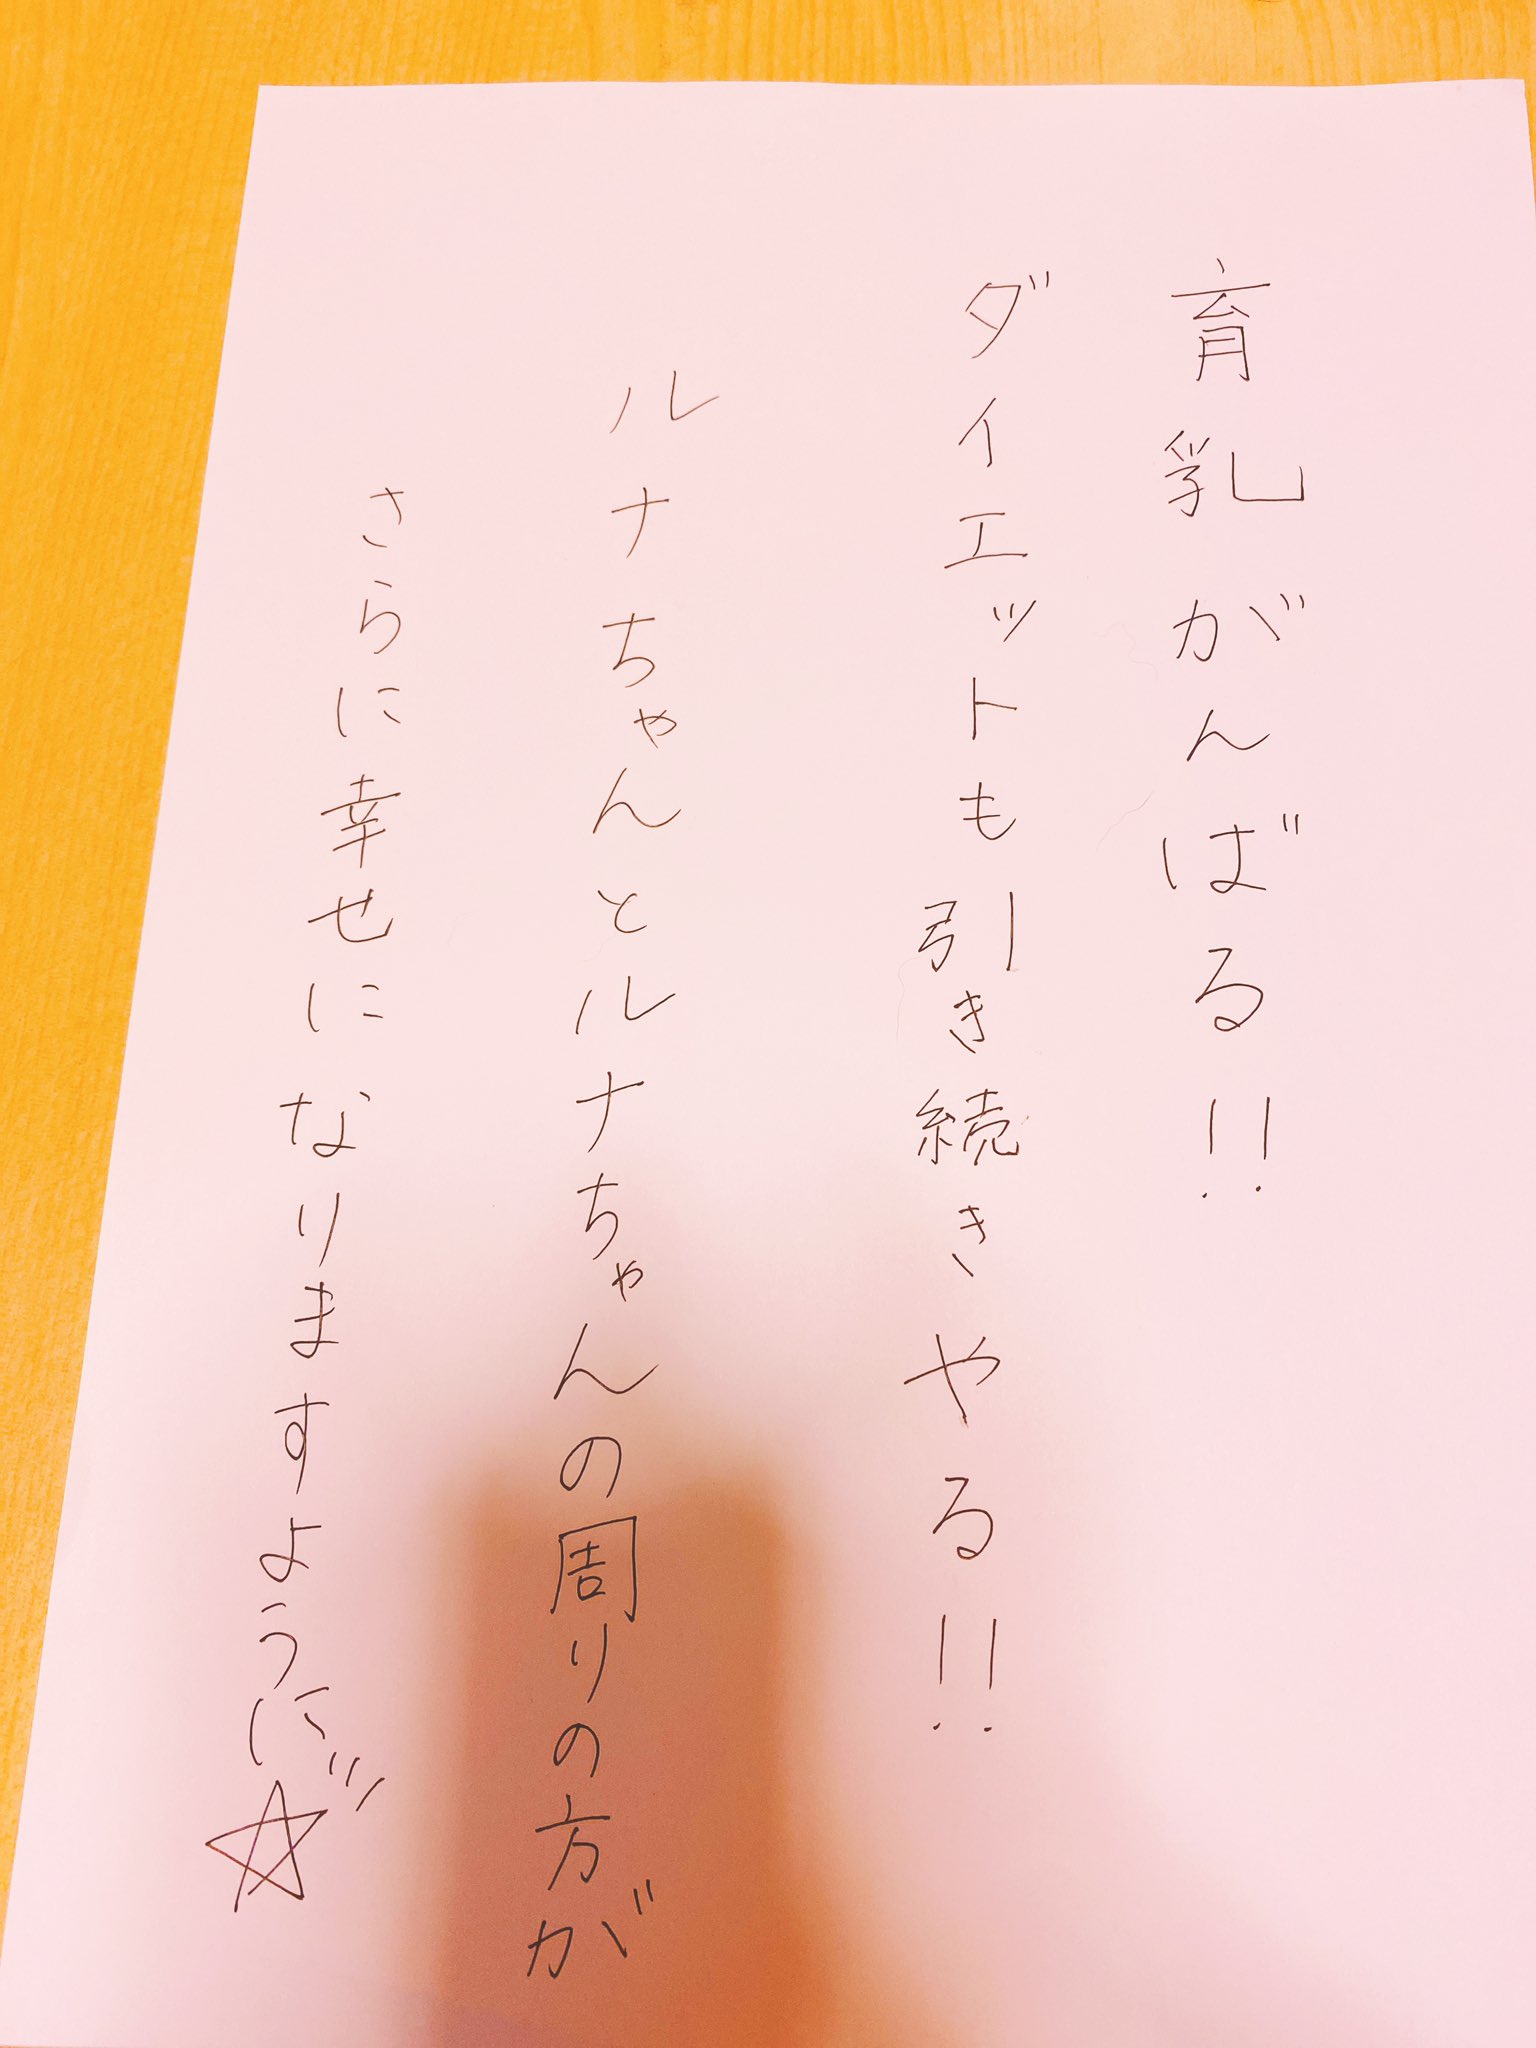 育乳がんばる!!
ダイエットも引き続きやる!!
ルナちゃんとルナちゃんの周りの方が
さらに幸せになりますように☆